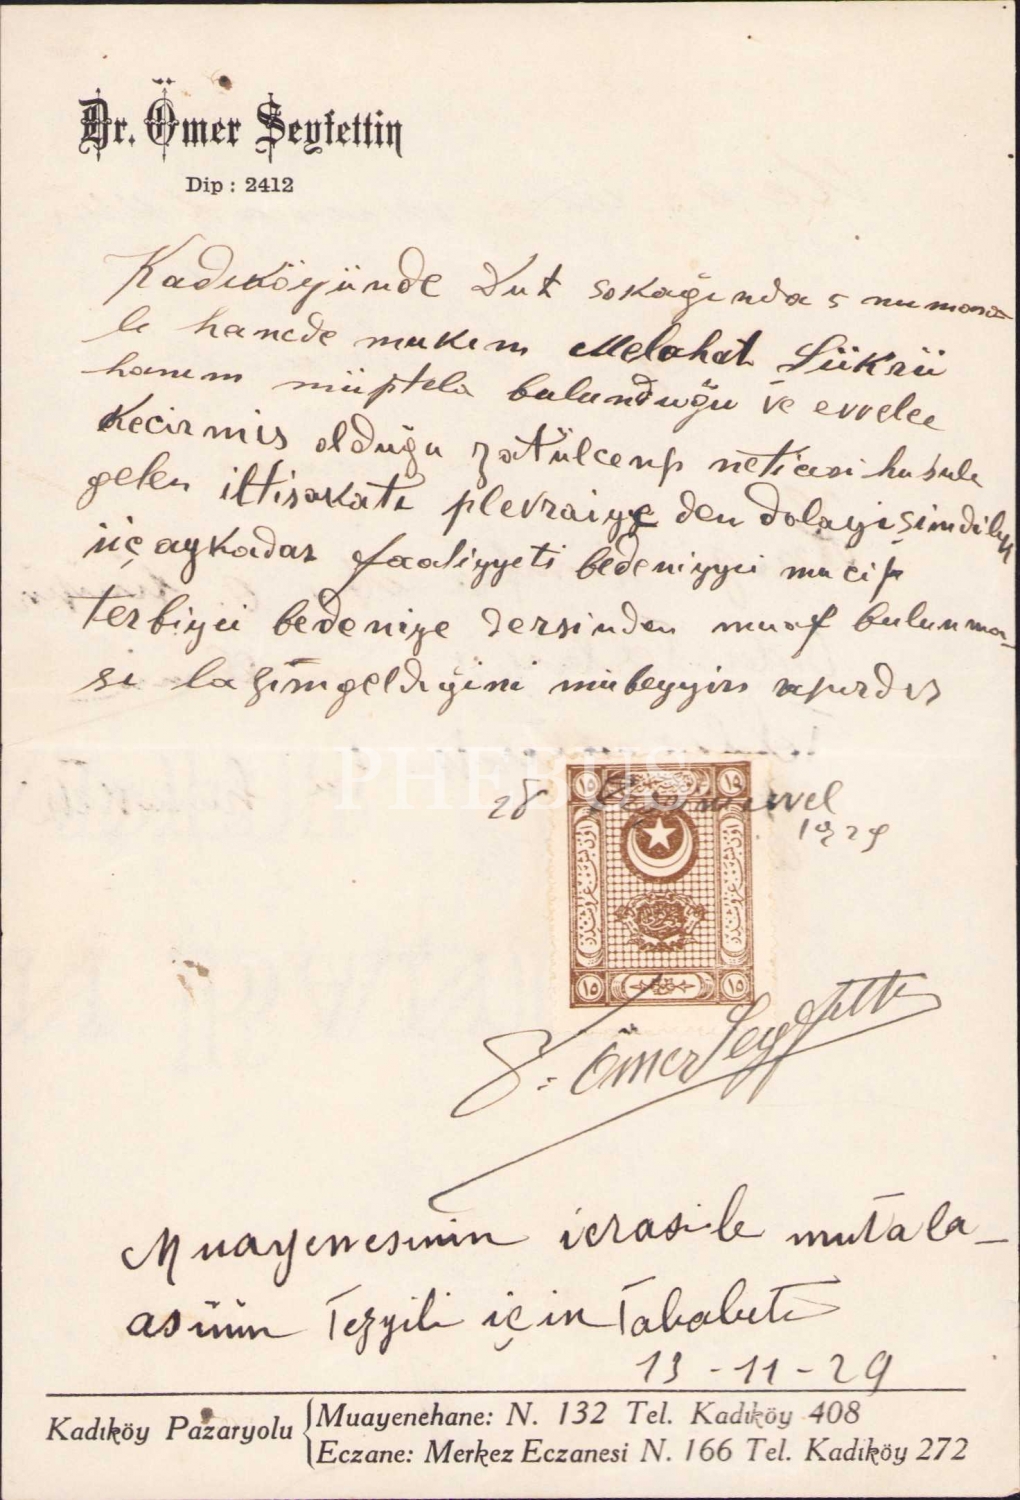 Dr. Ömer Seyfettin
Dip : 2412
Kadıköyünde Dut sokağında 5 numara
lı hanede mukim Melahat Şükrü
hanım müptela bulunduğu ve evvelce
kecirmis olduğu zatülcenp neticesi husule
gelen iltisakatı plevraiyye den dolayi şimdilik
üç ay kadar faaliyyeti bedeniyyei mucip
terbiyei bedeniye dersinden muaf bulunma-
si lazimgeldiğini mübeyyin rapurdur
PHEBUS
28
evvel
1929
١٥ ١٥
١٥ ١٥
Ömer Seyfettin
Muayenesinin icrasile mutala-
asının tezyili için Tababeti
13 - 11 - 29
Kadıköy Pazaryolu
Muayenehane: N. 132 Tel. Kadıköy 408
Eczane: Merkez Eczanesi N. 166 Tel. Kadıköy 272